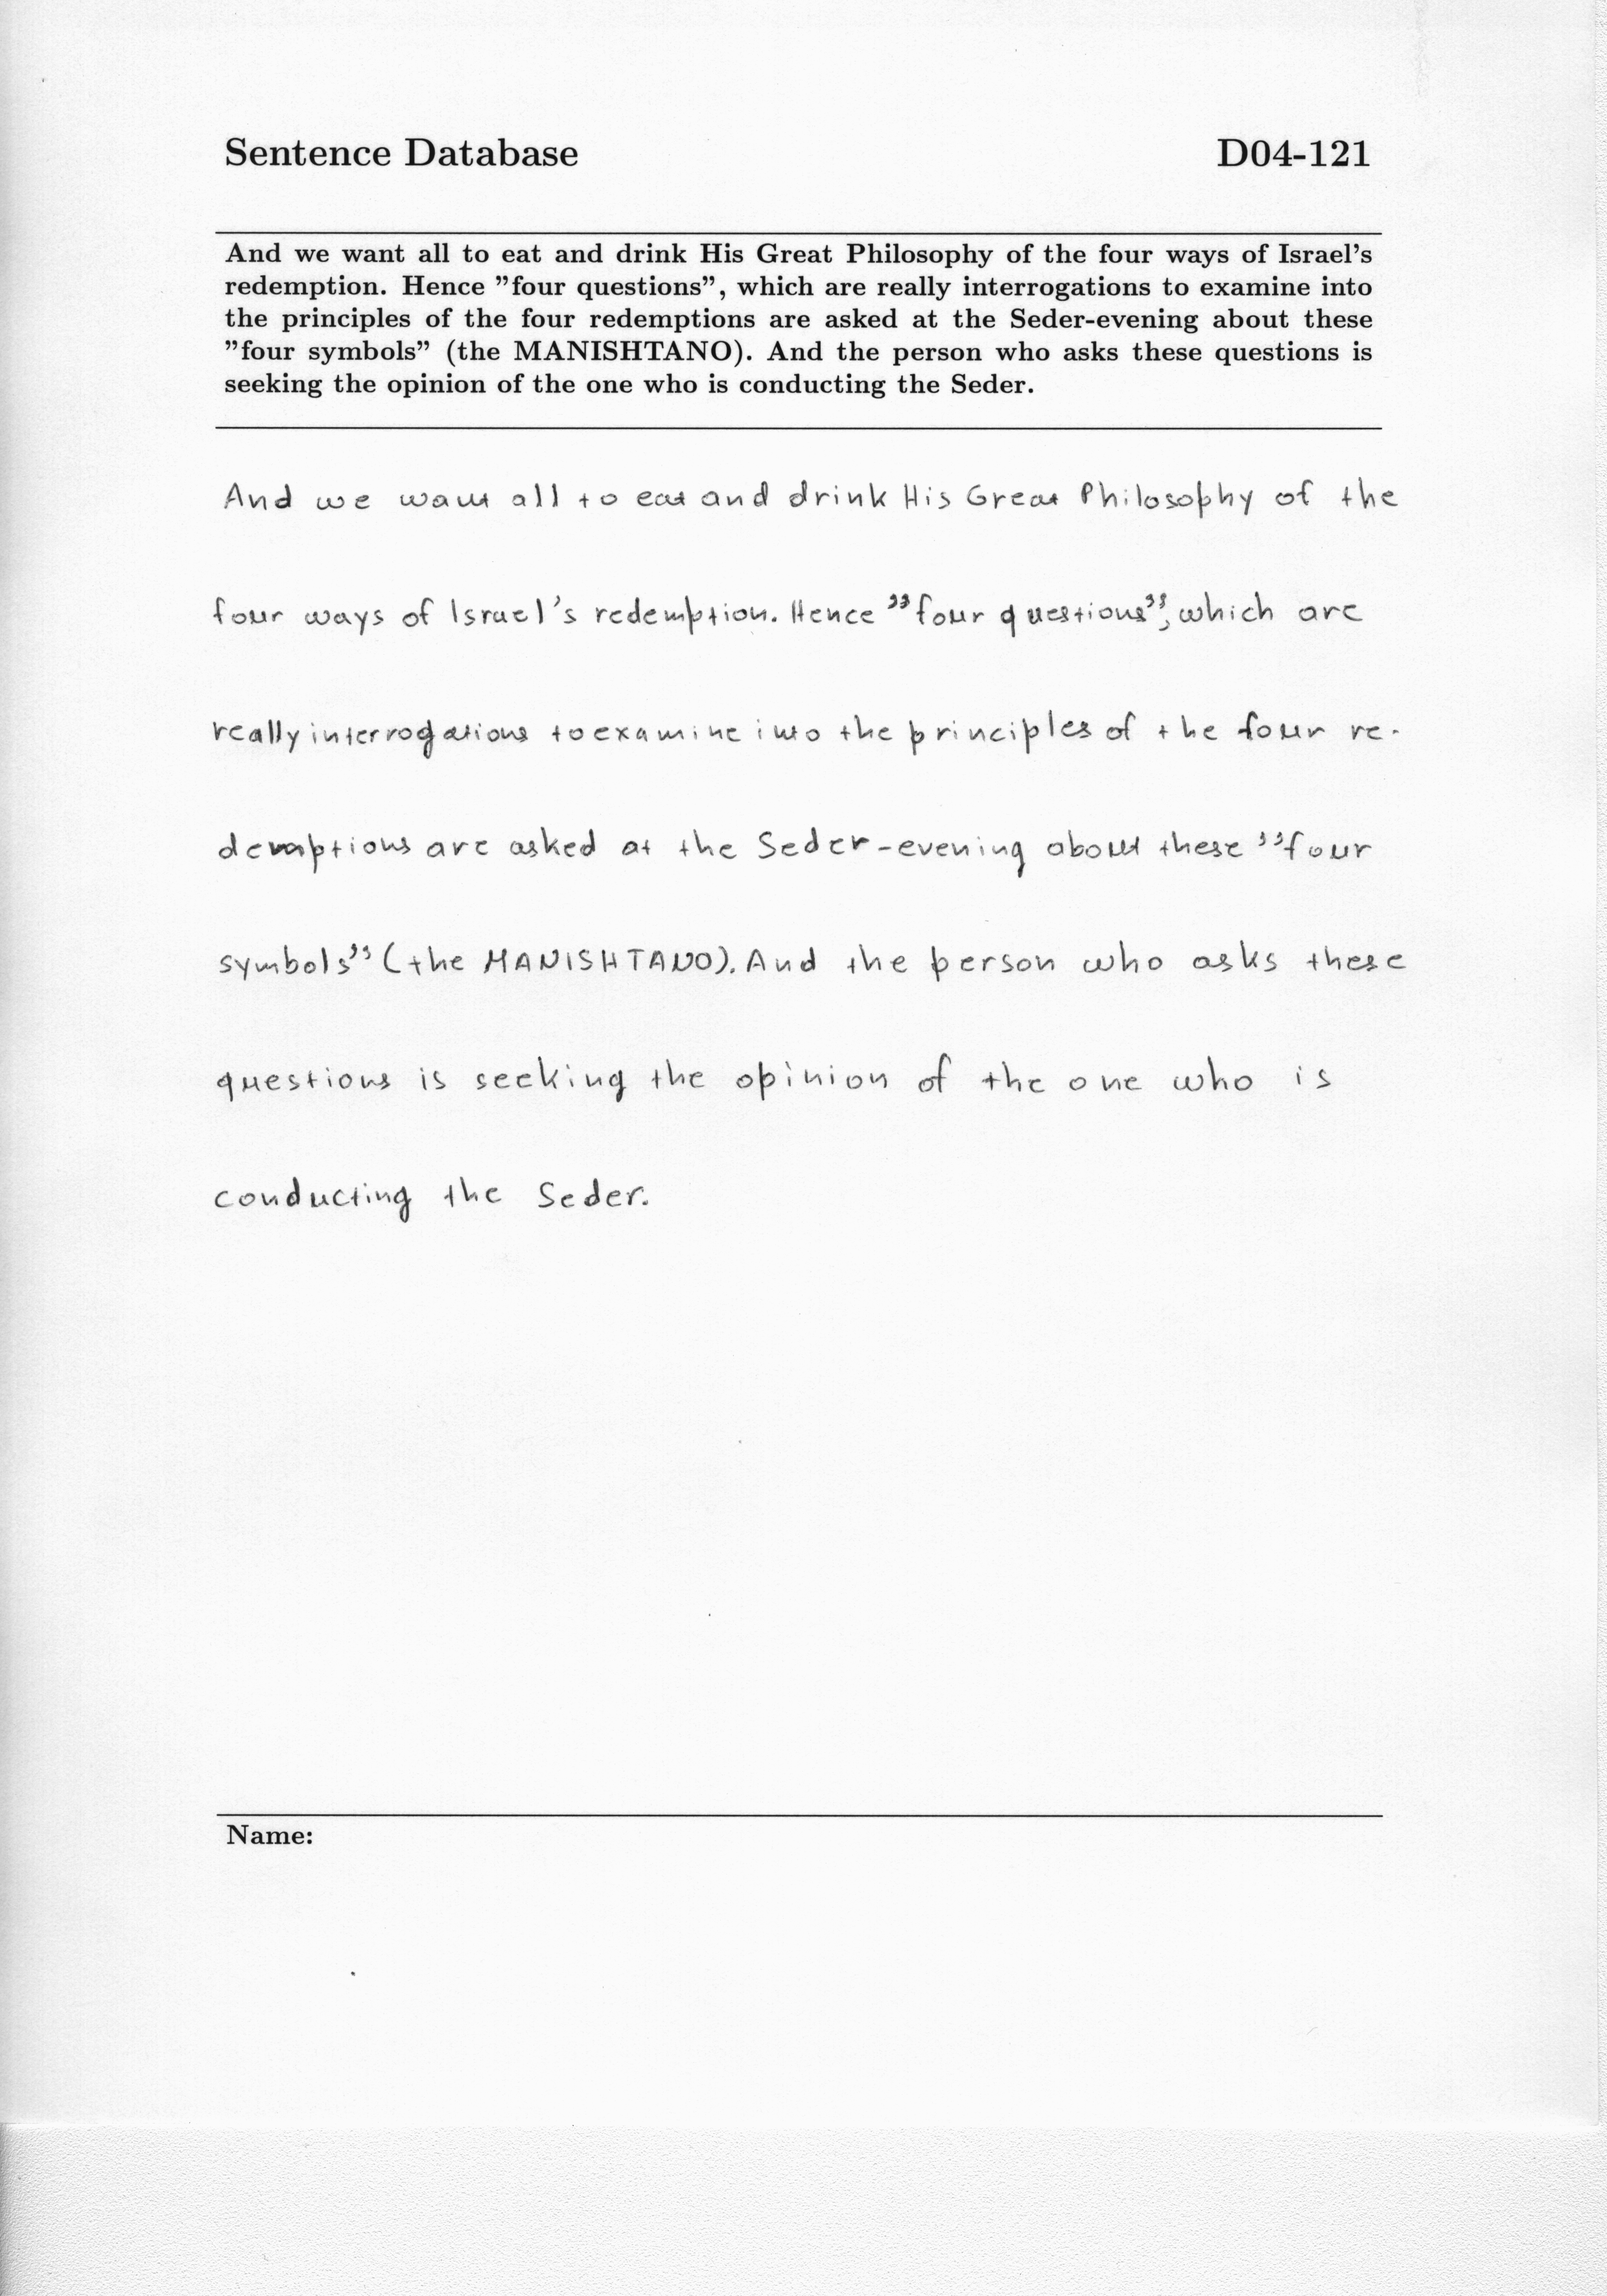 Sentence Database D04-121
And we want all to eat and drink His Great Philosophy of the four ways of Israel's
redemption. Hence "four questions", which are really interrogations to examine into
the principles of the four redemptions are asked at the Seder-evening about these
"four symbols" (the MANISHTANO). And the person who asks these questions is
seeking the opinion of the one who is conducting the Seder.
And we want all to eat and drink His Great Philosophy of the
four ways of Israel's redemption. Hence "four questions", which are
really interrogations to examine into the principles of the four re-
demptions are asked at the Seder-evening about these "four
symbols" (the MANISHTANO). And the person who asks these
questions is seeking the opinion of the one who is
conducting the Seder.
Name: